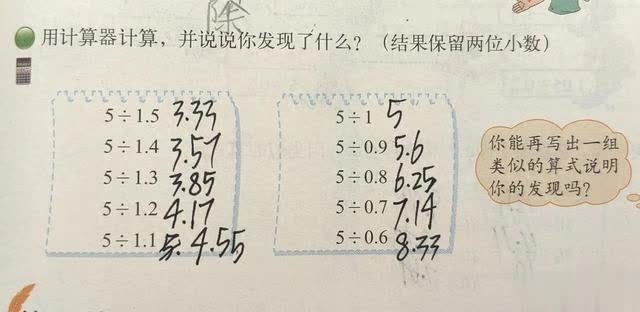 除
用计算器计算，并说说你发现了什么？（结果保留两位小数）
5÷1.5 3.33
5÷1.4 3.57
5÷1.3 3.85
5÷1.2 4.17
5÷1.1 4.55
5÷1 5
5÷0.9 5.6
5÷0.8 6.25
5÷0.7 7.14
5÷0.6 8.33
你能再写出一组
类似的算式说明
你的发现吗？